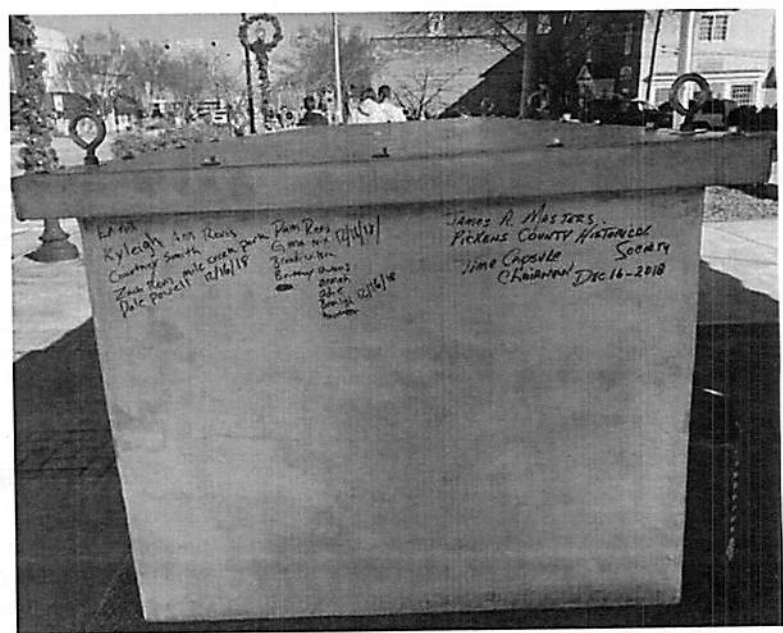 Kyleigh Ann Revis
Courtney Smith
Zach Revis mile creek park
Dale Powell 12/16/18
Pam Revis
Gma nix 12/16/18/
Brandi wilson
Brittney Owens
12/16/18
James R. Masters
Pickens County Historical
Society
Time Capsule
Chairman Dec 16-2018